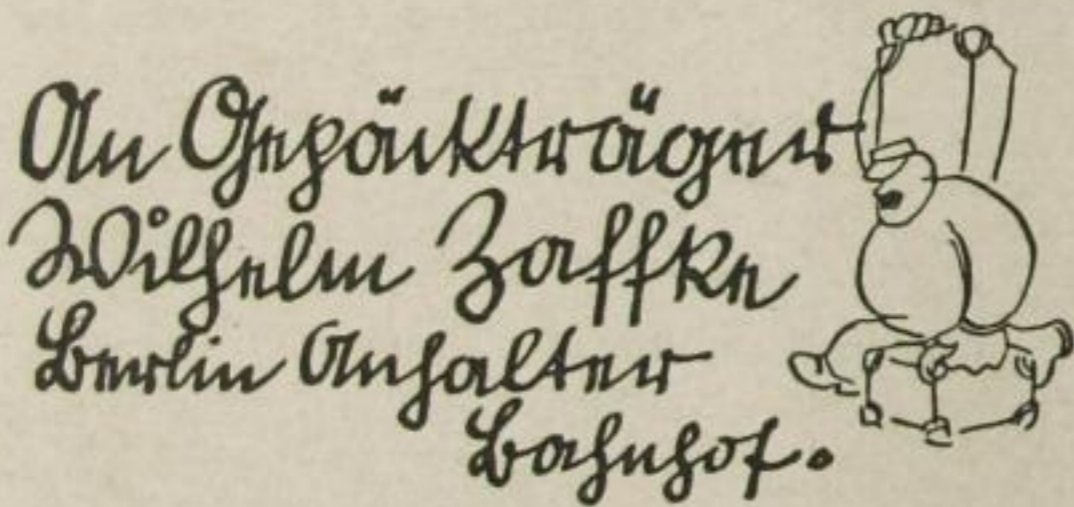 An Gepäckträger
Wilhelm Zaffke
Berlin Anhalter
Bahnhof.